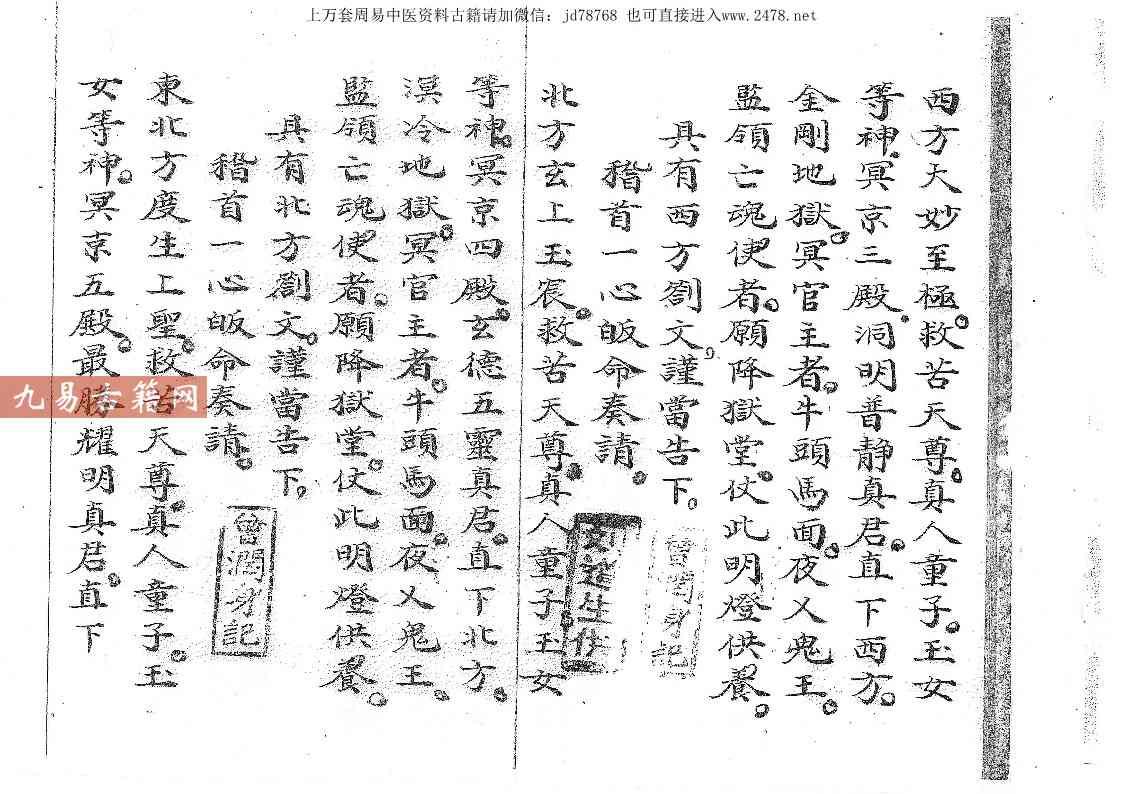 上万套周易中医资料古籍请加微信：jd78768 也可直接进入www.2478.net
西方大妙至極。救苦天尊。真人童子。玉女
等神。冥京三殿。洞明普静真君。直下西方。
金剛地獄。冥官主者。牛頭馬面。夜乂鬼王。
監領亡魂使者。願降獄堂。仗此明燈供養。
具有西方劄文。謹當告下。
稽首一心皈命奏請。
曾潤身記
北方玄上玉宸。救苦天尊。真人童子。玉女
等神。冥京四殿。玄德五靈真君。直下北方。
溟冷地獄。冥官主者。牛頭馬面。夜乂鬼王。
監領亡魂使者。願降獄堂。仗此明燈供養。
具有北方劄文。謹當告下。
稽首一心皈命奏請。
曾潤身記
東北方度生上聖。救苦天尊。真人童子。玉
女等神。冥京五殿。最勝耀明真君。直下
九易古籍网